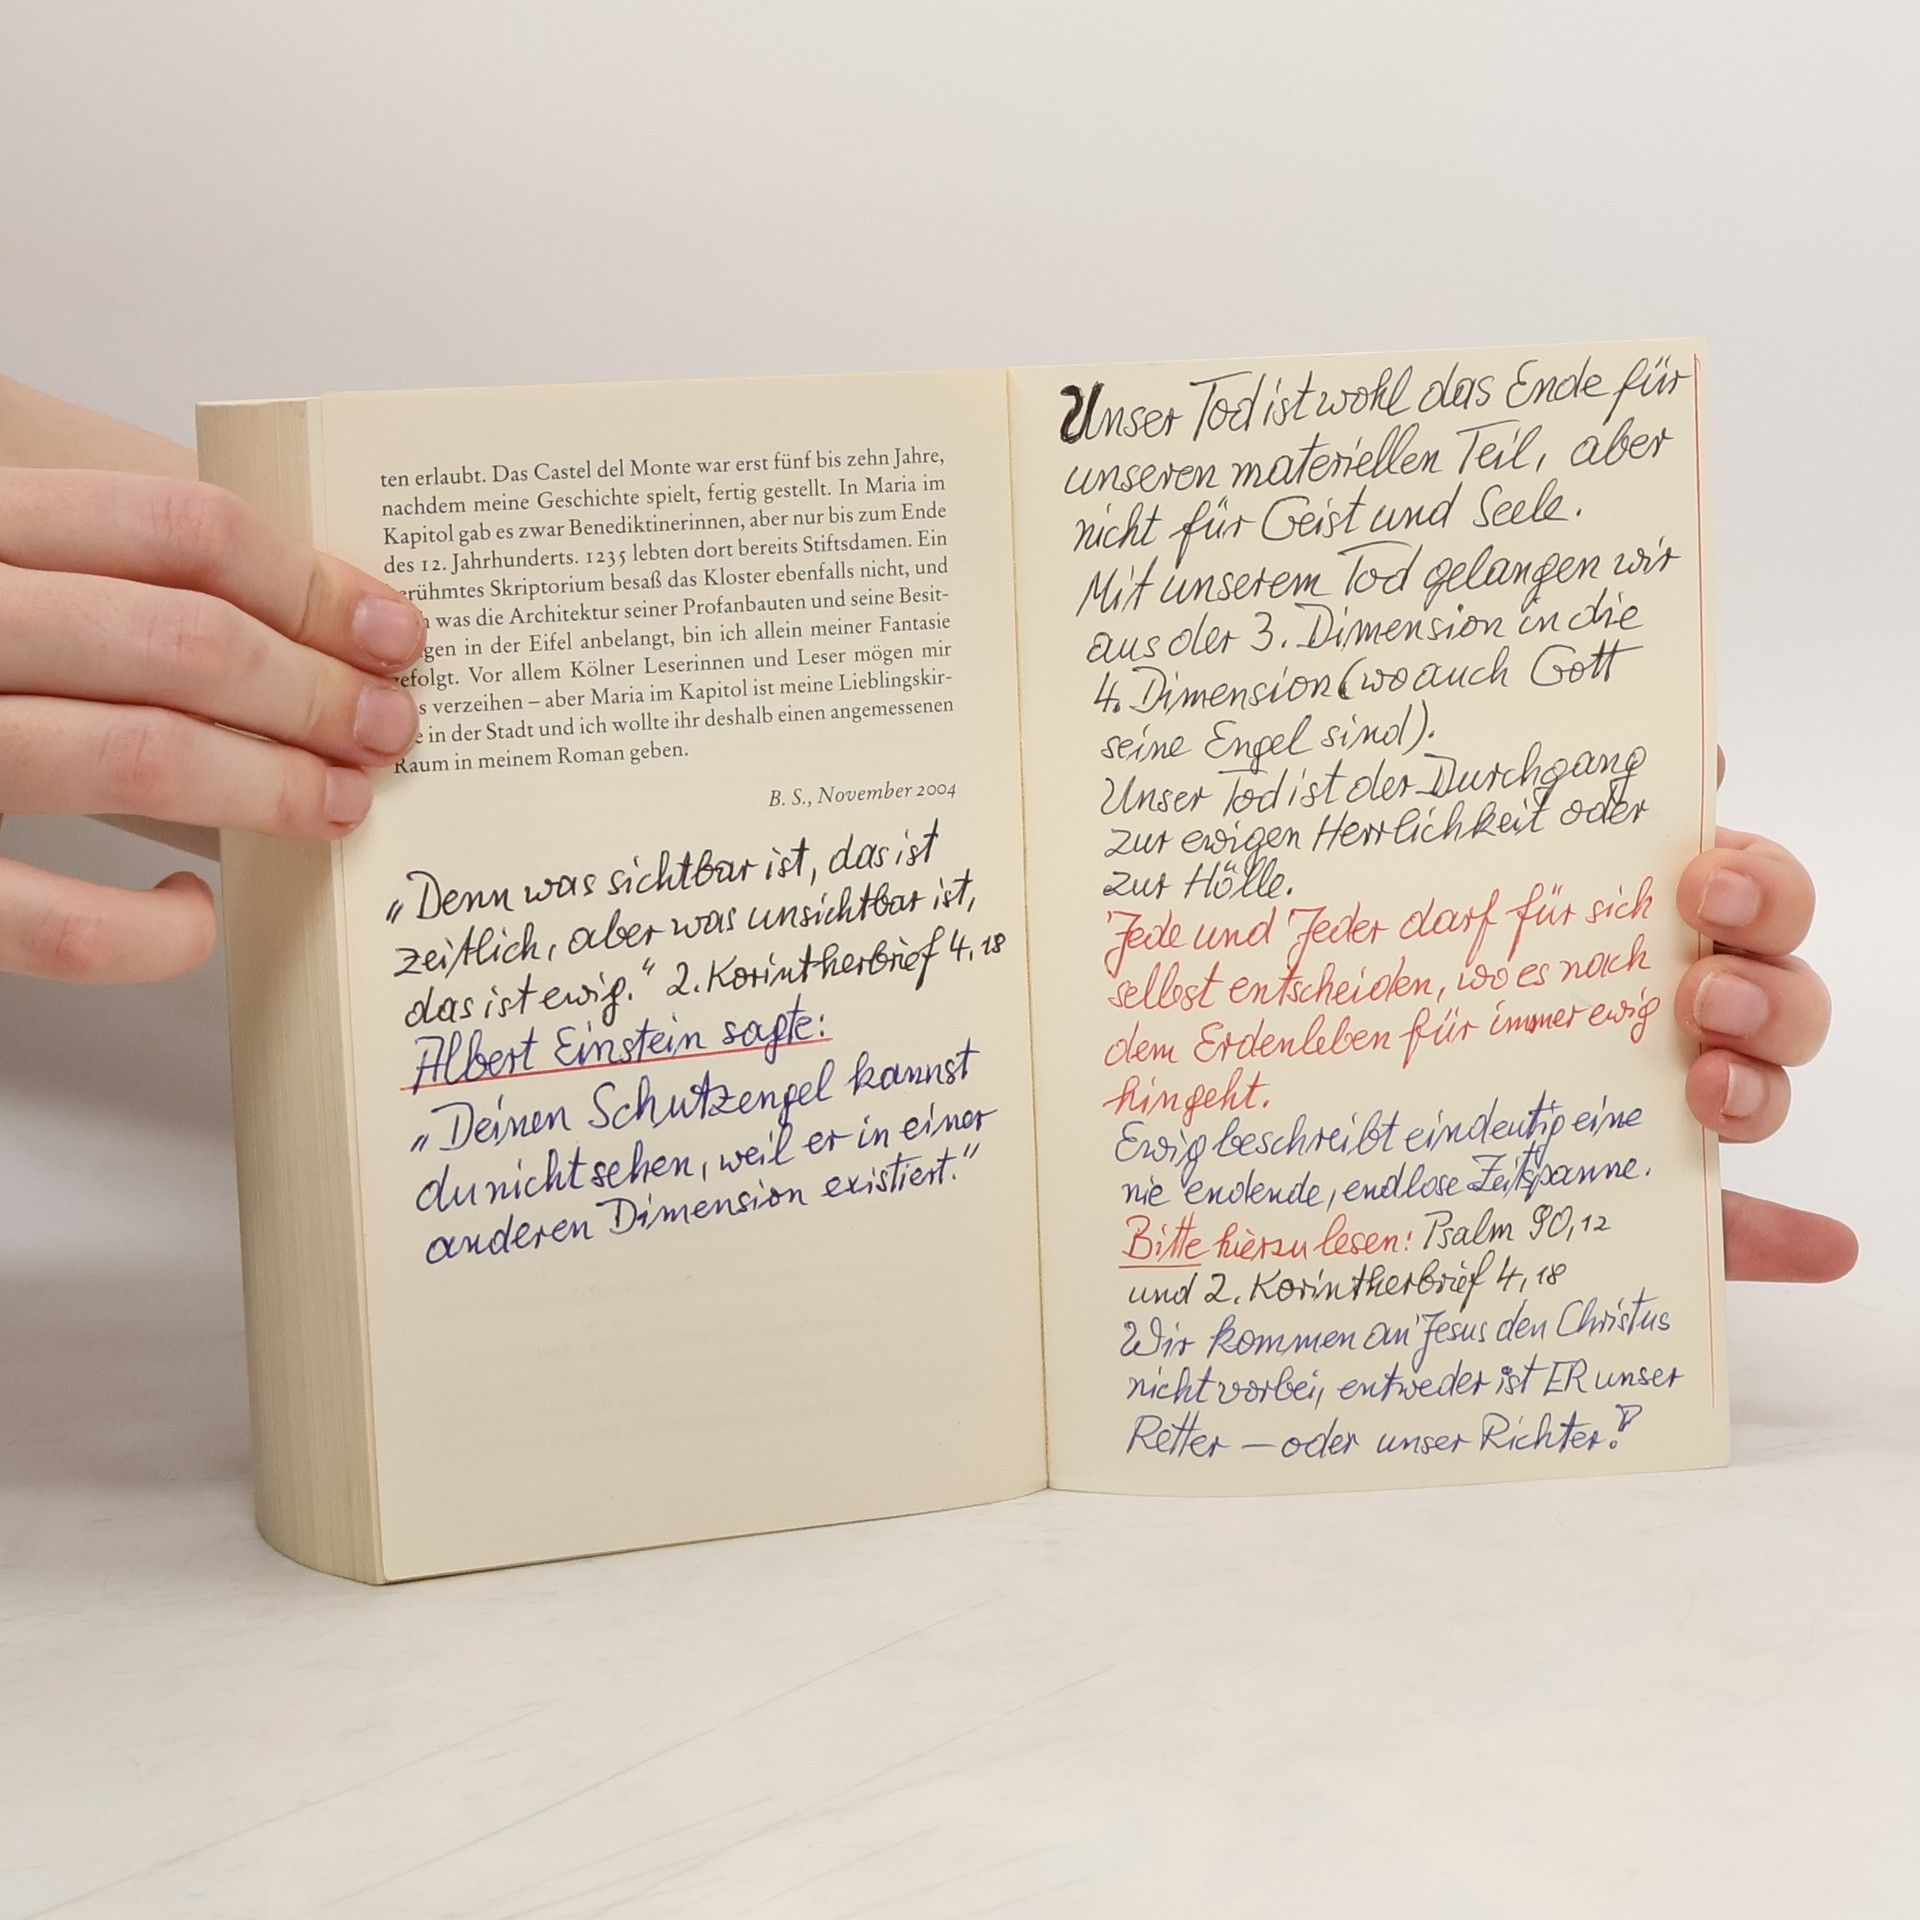 ten erlaubt. Das Castel del Monte war erst fünf bis zehn Jahre,
nachdem meine Geschichte spielt, fertig gestellt. In Maria im
Kapitol gab es zwar Benediktinerinnen, aber nur bis zum Ende
des 12. Jahrhunderts. 1235 lebten dort bereits Stiftsdamen. Ein
erühmtes Skriptorium besaß das Kloster ebenfalls nicht, und
was die Architektur seiner Profanbauten und seine Besit-
gen in der Eifel anbelangt, bin ich allein meiner Fantasie
efolgt. Vor allem Kölner Leserinnen und Leser mögen mir
s verzeihen – aber Maria im Kapitol ist meine Lieblingskir-
e in der Stadt und ich wollte ihr deshalb einen angemessenen
Raum in meinem Roman geben.
B. S., November 2004
„Denn was sichtbar ist, das ist
zeitlich, aber was unsichtbar ist,
das ist ewig.“ 2. Korintherbrief 4,18
Albert Einstein sagte:
„Deinen Schutzengel kannst
du nicht sehen, weil er in einer
anderen Dimension existiert.“
Unser Tod ist wohl das Ende für
unseren materiellen Teil, aber
nicht für Geist und Seele.
Mit unserem Tod gelangen wir
aus der 3. Dimension in die
4. Dimension (wo auch Gott
seine Engel sind).
Unser Tod ist der Durchgang
zur ewigen Herrlichkeit oder
zur Hölle.
Jede und Jeder darf für sich
selbst entscheiden, wo es nach
dem Erdenleben für immer ewig
hingeht.
Ewig beschreibt eindeutig eine
nie endende, endlose Zeitspanne.
Bitte hierzu lesen: Psalm 90,12
und 2. Korintherbrief 4,18
Wir kommen an Jesus den Christus
nicht vorbei, entweder ist ER unser
Retter – oder unser Richter!